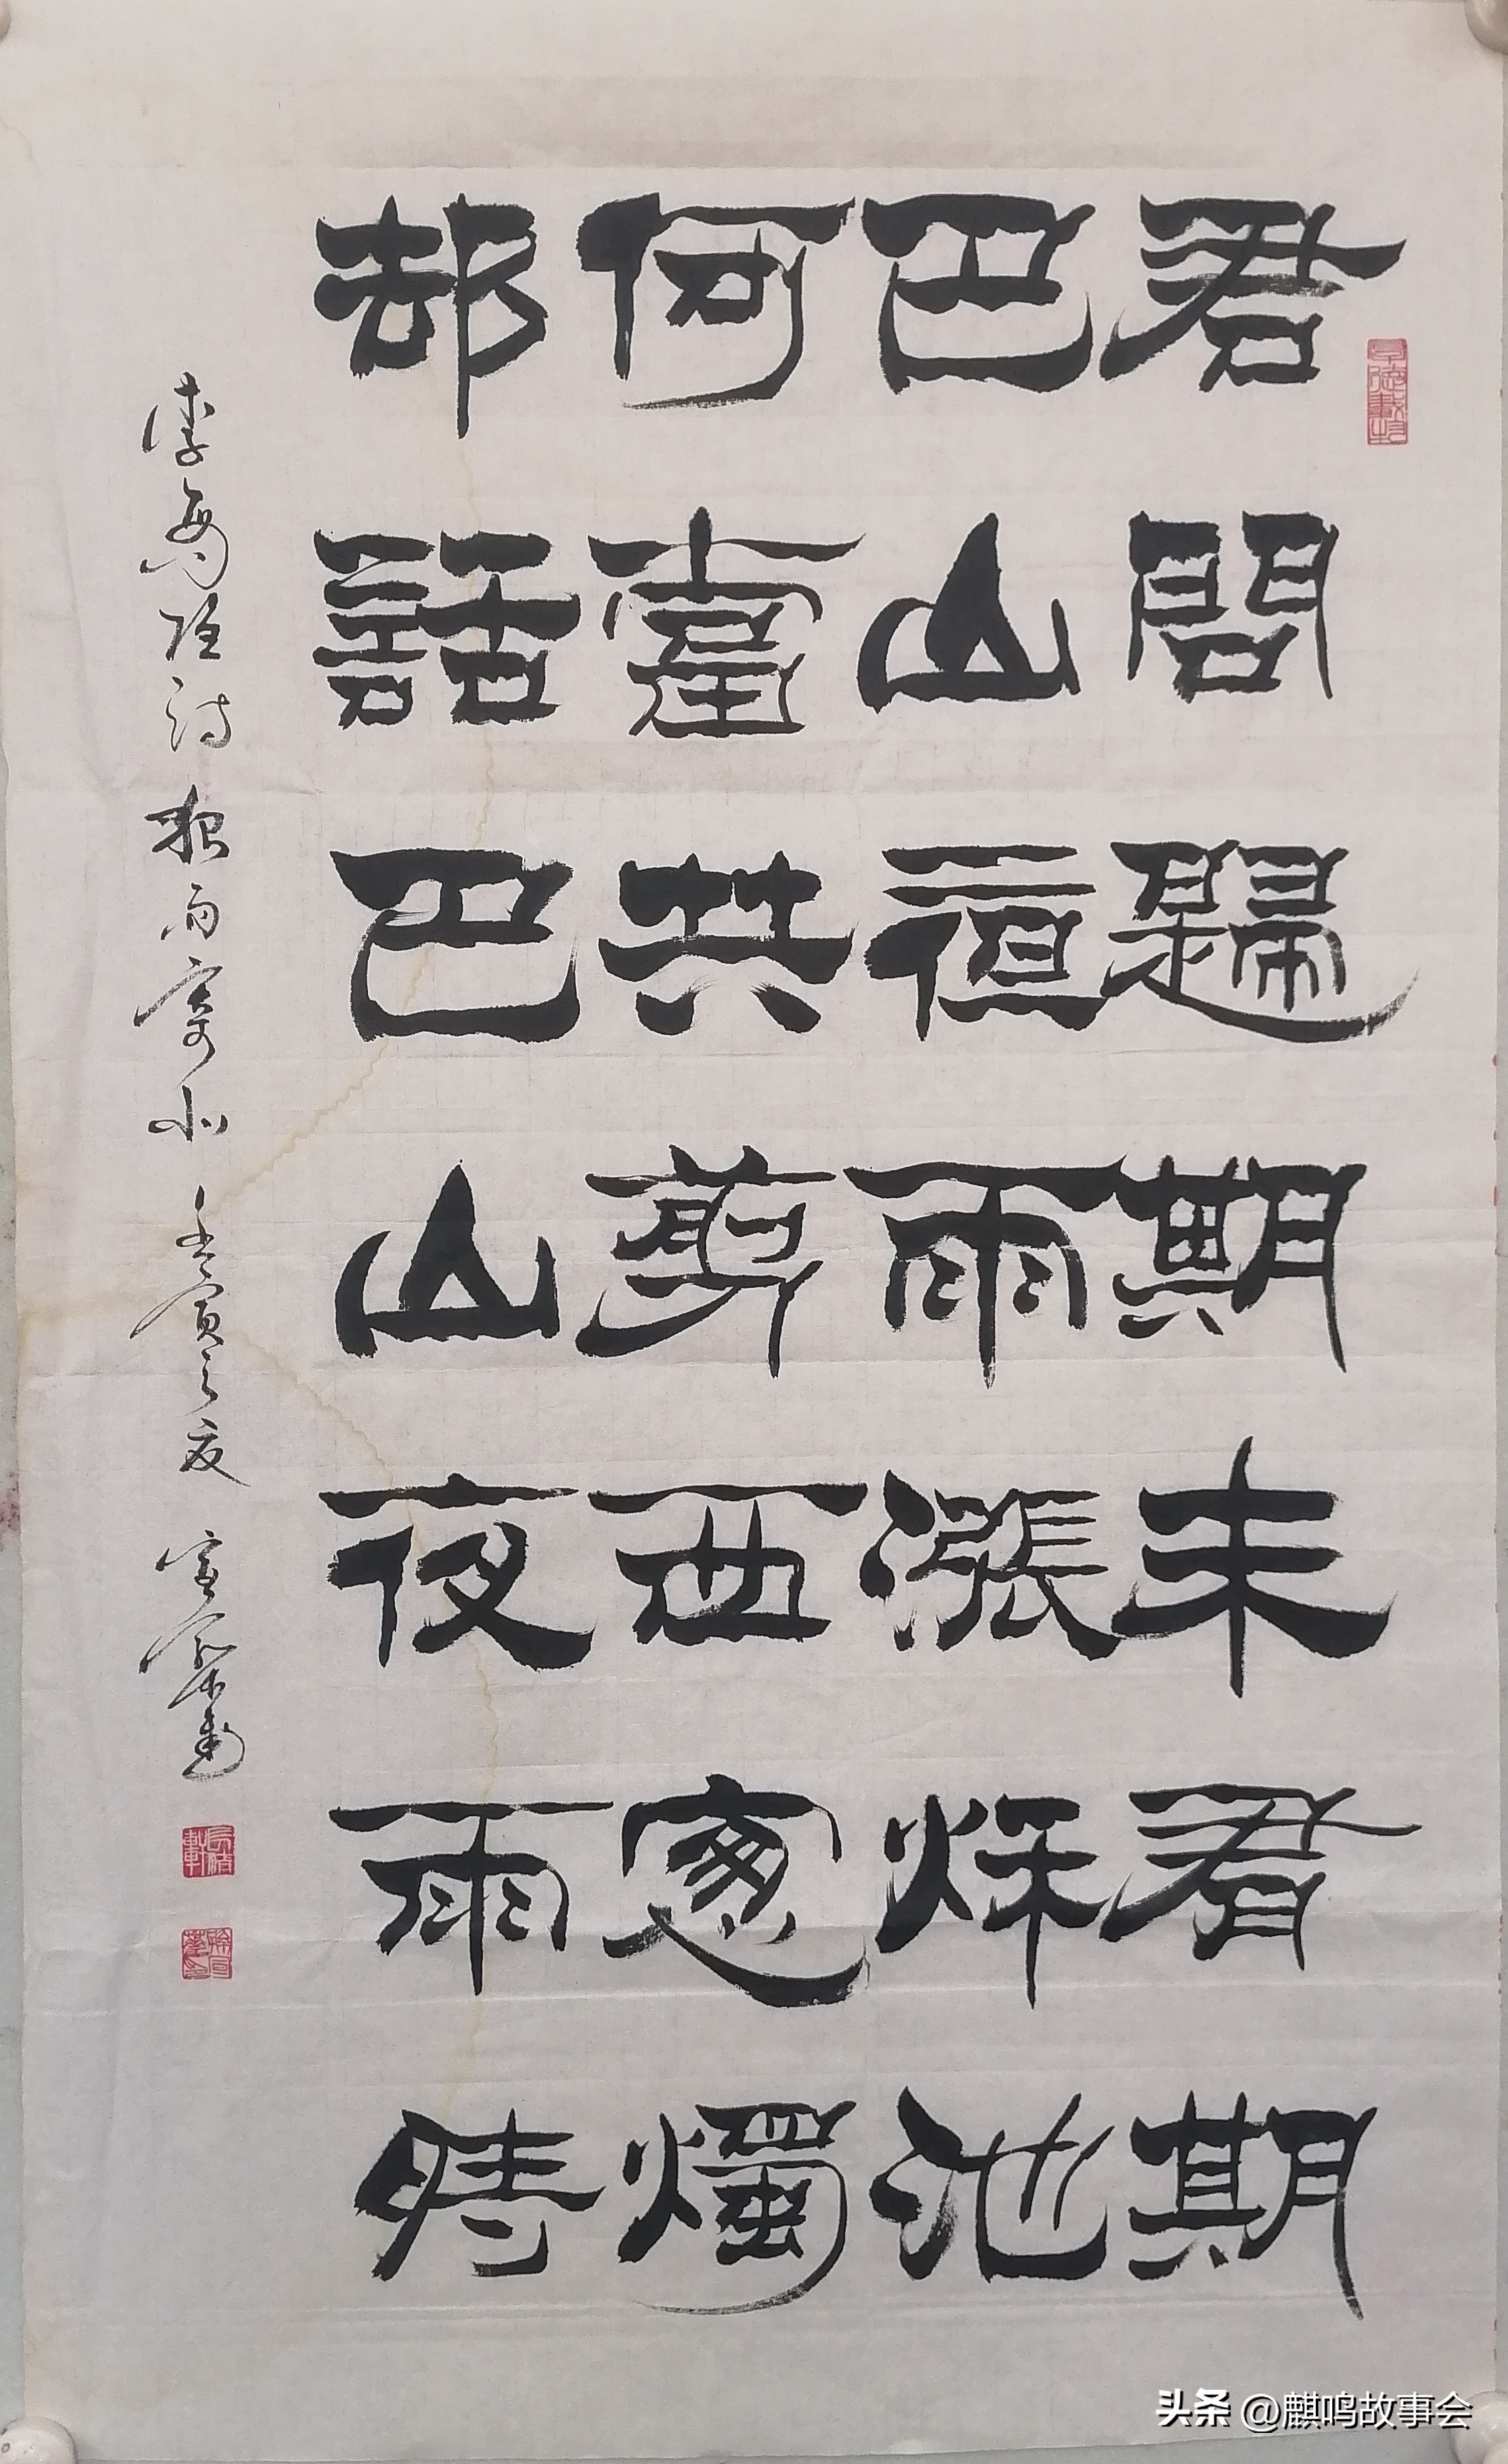 君問歸期未有期
巴山亱雨漲秌池
何當共剪西窻燭
却話巴山夜雨時
李商隱詩 夜雨寄北 壬寅之夏
厚德載物
头条 @麒鸣故事会